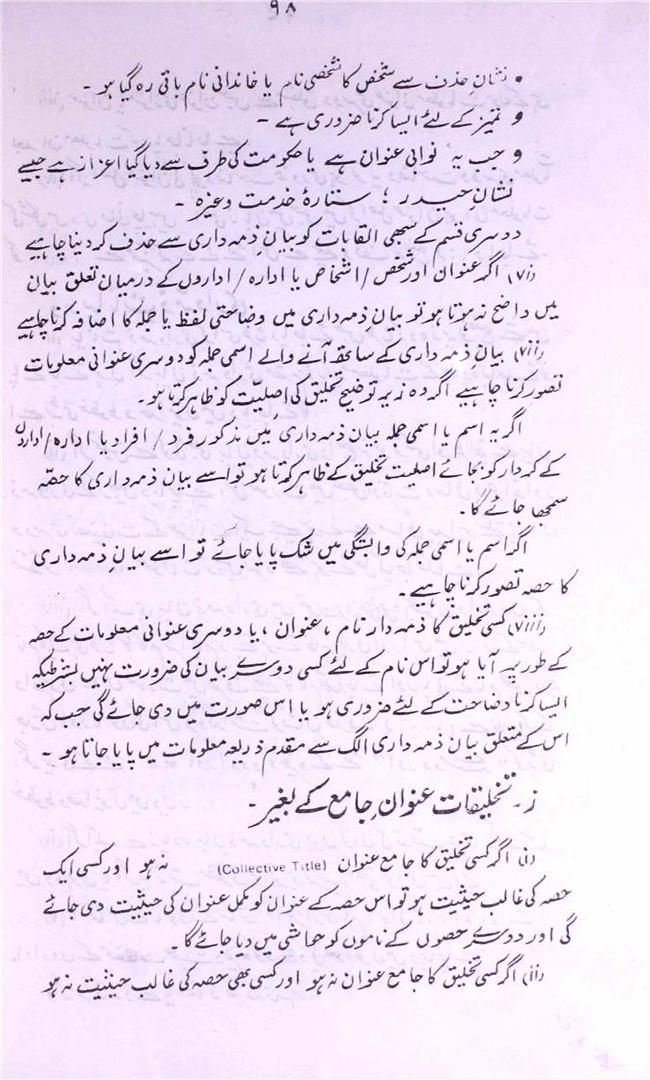 ۹۸
• نشانِ حذف سے شخص کا شخصی نام یا خاندانی نام باقی رہ گیا ہو۔
و تمیز کے لئے ایسا کرنا ضروری ہے۔
و جب یہ نوابی عنوان ہے یا حکومت کی طرف سے دیا گیا اعزاز ہے جیسے
نشانِ حیدر ؛ ستارۂ خدمت وغیرہ۔
دوسری قسم کے سبھی القابات کو بیانِ ذمہ داری سے حذف کر دینا چاہیے
(vi) اگر عنوان اور شخص / اشخاص یا ادارہ / اداروں کے درمیان تعلق بیان
میں واضح نہ ہوتا ہو تو بیانِ ذمہ داری میں وضاحتی لفظ یا جملہ کا اضافہ کرنا چاہیے
(vii) بیان ذمہ داری کے ساتھ آنے والے اسمی جملہ کو دوسری عنوانی معلومات
تصور کرنا چاہیے اگر وہ زیر توضیح تخلیق کی اصلیّت کو ظاہر کرتا ہو۔
اگر یہ اسم یا اسمی جملہ بیان ذمہ داری میں مذکور فرد / افراد یا ادارہ / اداروں
کے کردار کو بجائے اصلیت تخلیق کے ظاہر کرتا ہو تو اسے بیان ذمہ داری کا حصّہ
سمجھا جائے گا۔
اگر اسم یا اسمی جملہ کی وابستگی میں شک پایا جائے تو اسے بیانِ ذمہ داری
کا حصہ تصور کرنا چاہیے۔
(viii) کسی تخلیق کا ذمہ دار نام ، عنوان ، یا دوسری عنوانی معلومات کے حصہ
کے طور پہ آیا ہو تو اس نام کے لئے کسی دوسرے بیان کی ضرورت نہیں بشرطیکہ
ایسا کرنا وضاحت کے لئے ضروری ہو یا اس صورت میں دی جائے گی جب کہ
اس کے متعلق بیان ذمہ داری الگ سے مقدم ذریعہ معلومات میں پایا جاتا ہو۔
ز۔ تخلیقات عنوانِ جامع کے بغیر۔
(i) اگر کسی تخلیق کا جامع عنوان (Collective Title) نہ ہو اور کسی ایک
حصہ کی غالب حیثیت ہو تو اس حصہ کے عنوان کو مکمل عنوان کی حیثیت دی جائے
گی اور دوسرے حصوں کے ناموں کو حواشی میں دیا جائے گا۔
(ii) اگر کسی تخلیق کا جامع عنوان نہ ہو اور کسی بھی حصہ کی غالب حیثیت نہ ہو